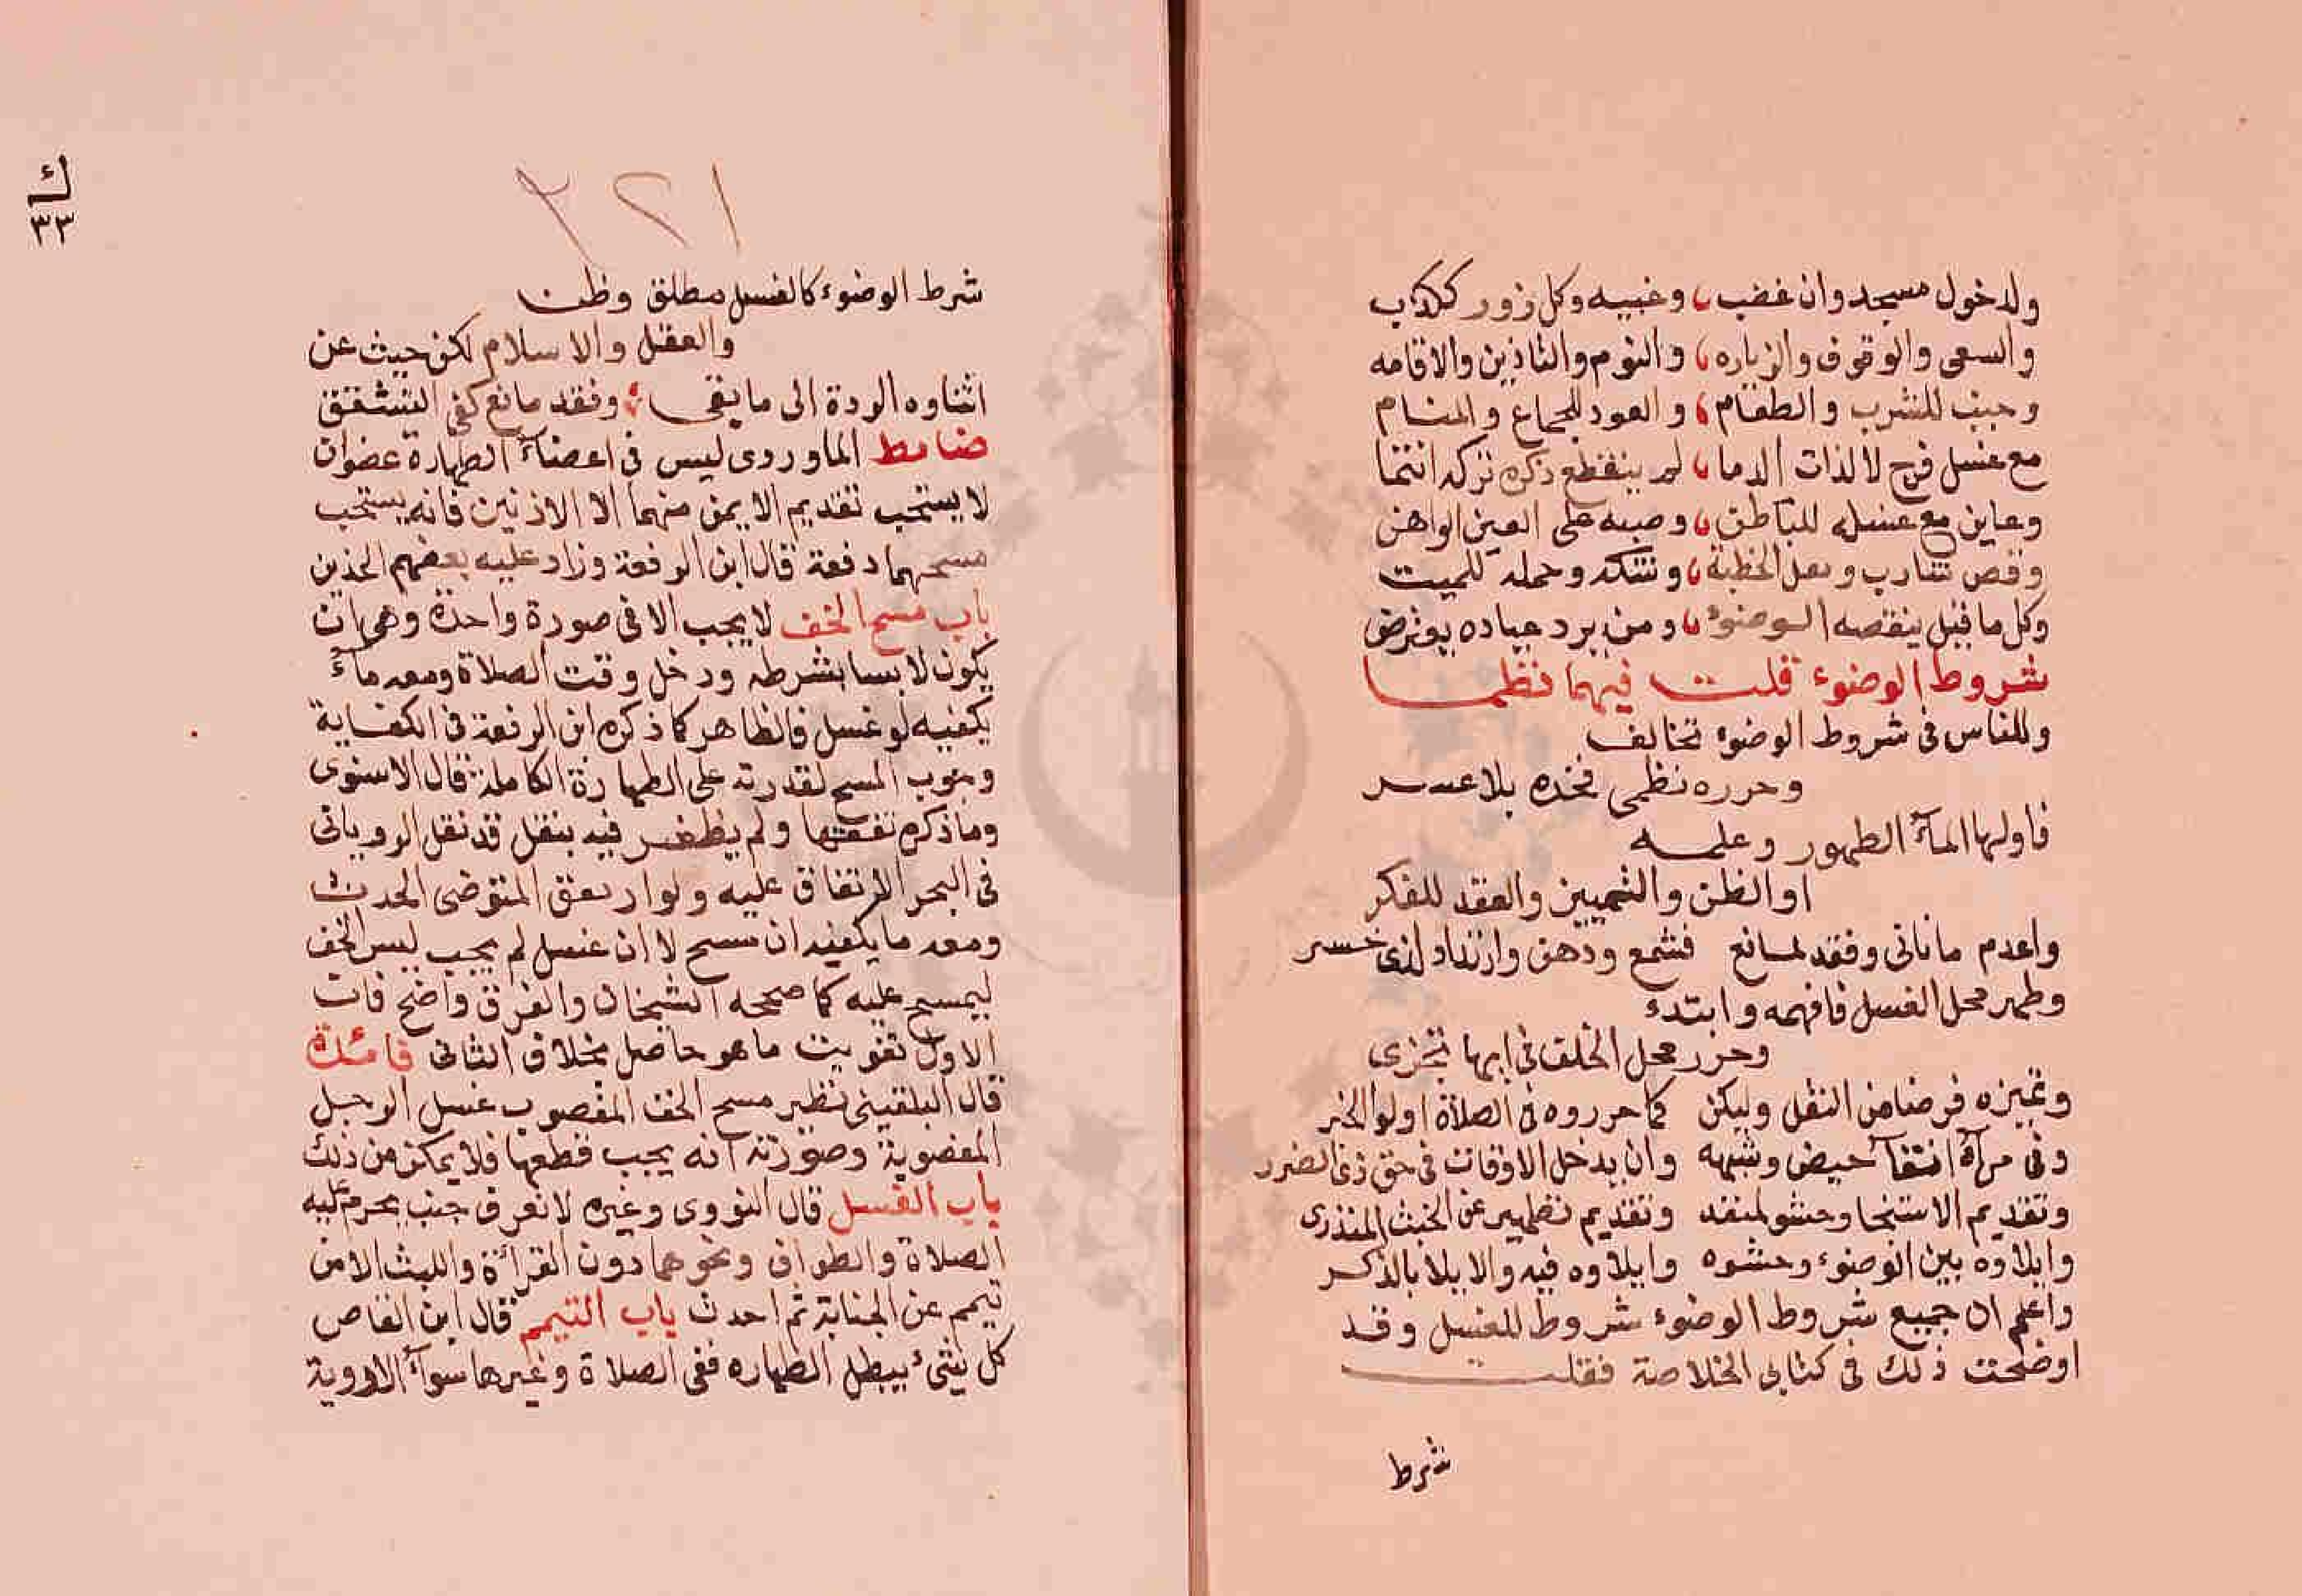 ولدخول مسجد وان غضب وغيبه وكل زور ككذاب
والسعى والوقوف والزياره والنوم والتاذين والاقامه
وجنب للشرب والطعام والعود للجماع والمنام
مع غسل فرج لا لذات الدما لم ينقطع ذكره تركه انتما
وعاين مع غسله للباطن وصبه على العين الواهن
وقص شارب ونقل الخطبة وشكه وحمله للميت
وكل ما قيل ينقضه الوضوء ومن يرد عباده
شروط الوضوء قلت فيها نظما
وللناس فى شروط الوضوء تخالف
وحرره نظمى فخذه بلا عسر
فاولها المآء الطهور وعلمه
او الظن والتمييز والعقد للفكر
واعدم مانافى وفقد لمانع فشمع ودهن وارتداد لذى خسر
وطهر محل الغسل فافهمه وابتدء
وحرر محل الخلف فى ايها تجزى
وتمييزه فرضا من النفل وليكن كما حرروه فى الصلاة اولو الخبر
وفى مرآة انتفآ حيض وشبهه وان يدخل الاوقات فى حق ذى الضرر
وتقديم الاستنجا وحشو لمنفذ وتقديم تطهير عن الخبث المنذرى
وايلاوه بين الوضوء وحشوه وايلاوه فيه والايلا بالذكر
واعلم ان جميع شروط الوضوء شروط للغسل وقد
اوضحت ذلك فى كتابى الخلاصة فقلت
شرط
٣٢١
شرط الوضوء كالغسل مطلق وظن
والعقل والاسلام لكن حيث عن
اثناوه الردة الى ما يقى وفقد مانع كفى
ضابط الماوردى ليس فى اعضآء الطهارة عضوان
لا يستحب تقديم الايمن منهما الا الاذنين فانه يستحب
مسحهما دفعة قال ابن الرفعة وزاد عليه بعضهم الخدين
باب مسح الخف لا يجب الا فى صورة واحدة وهى ان
يكون لابسا بشرطه ودخل وقت الصلاة ومعه مآء
يكفيه لو غسل فالظاهر كما ذكره ابن الرفعة فى الكفاية
وجوب المسح لقدرته على الطهارة الكاملة قال الاسنوى
وما ذكره تفقها ولم يظفر فيه بنقل قد نقل الرويانى
فى البحر الاتفاق عليه ولو ارهق المتوضى الحدث
ومعه ما يكفيه ان مسح لا ان غسل لم يجب لبس الخف
ليمسح عليه كما صححه الشيخان والفرق واضح فان
الاول تفويت ما هو حاصل بخلاف الثانى فائدة
قال البلقينى نظير مسح الخف المغصوب غسل الرجل
المغصوبة وصورته انه يجب قطعها فلا يمكن من ذلك
باب الغسل قال النووى وغيره لا نعرف جنب يحرم عليه
الصلاة والطواف ونحوهما دون القرآءة واللبث الا من
تيمم عن الجنابة ثم احدث باب التيمم قال ابن القاص
كل شىء يبطل الطهاره ففى الصلاة وغيرها سوآء الا روية
٣٣